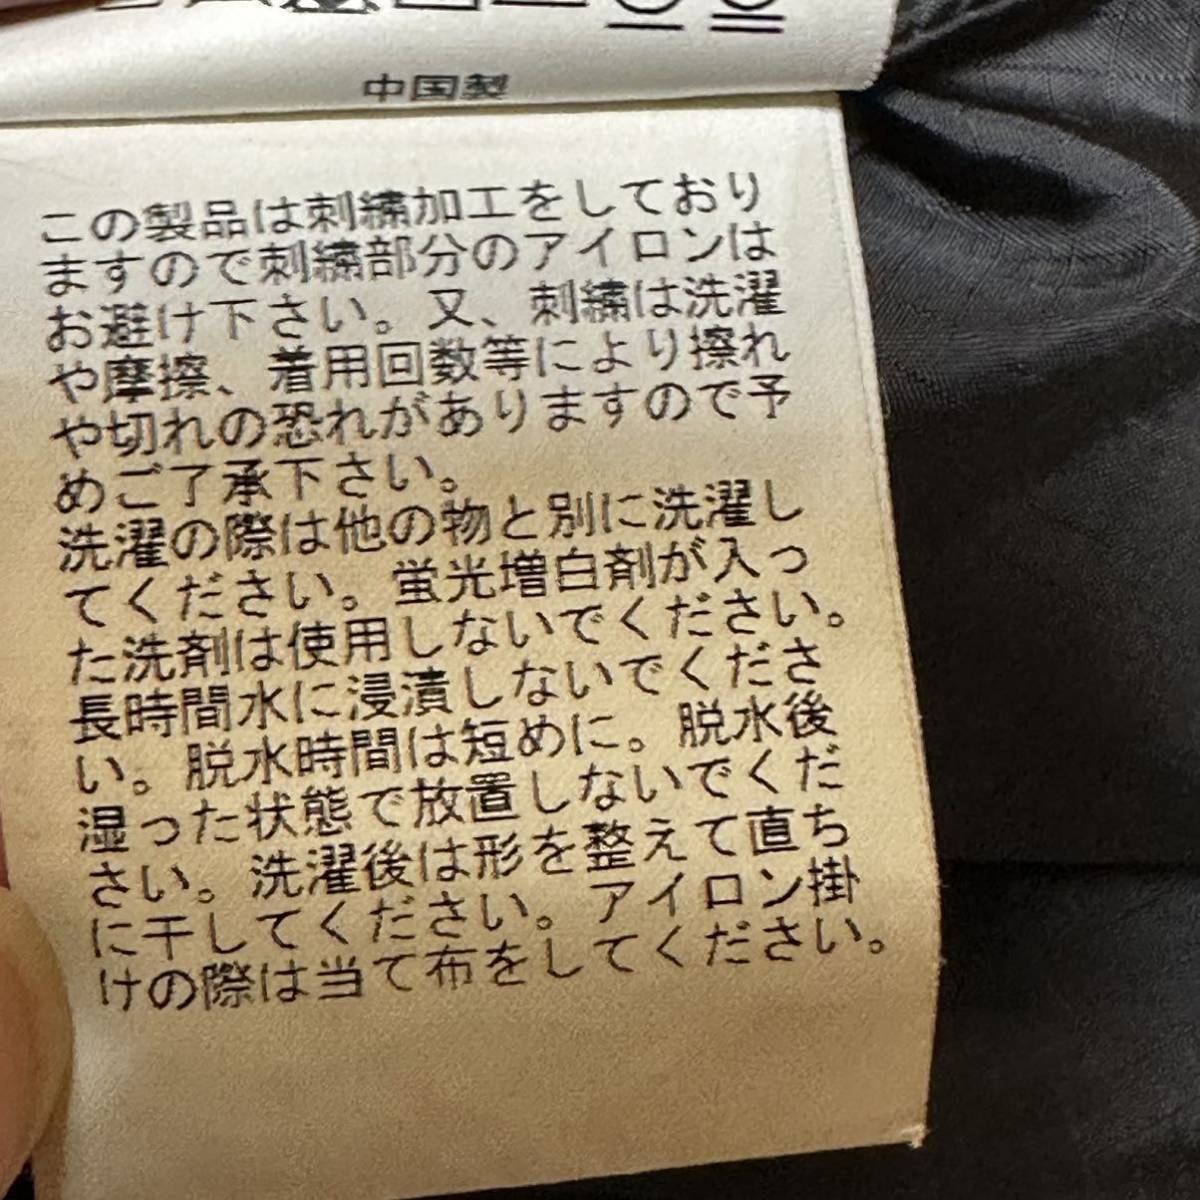 中国製
この製品は刺繍加工をしており
ますので刺繍部分のアイロンは
お避け下さい。又、刺繍は洗濯
や摩擦、着用回数等により擦れ
や切れの恐れがありますので予
めご了承下さい。
洗濯の際は他の物と別に洗濯し
てください。蛍光増白剤が入っ
た洗剤は使用しないでください。
長時間水に浸漬しないでくださ
い。脱水時間は短めに。脱水後
湿った状態で放置しないでくだ
さい。洗濯後は形を整えて直ち
に干してください。アイロン掛
けの際は当て布をしてください。